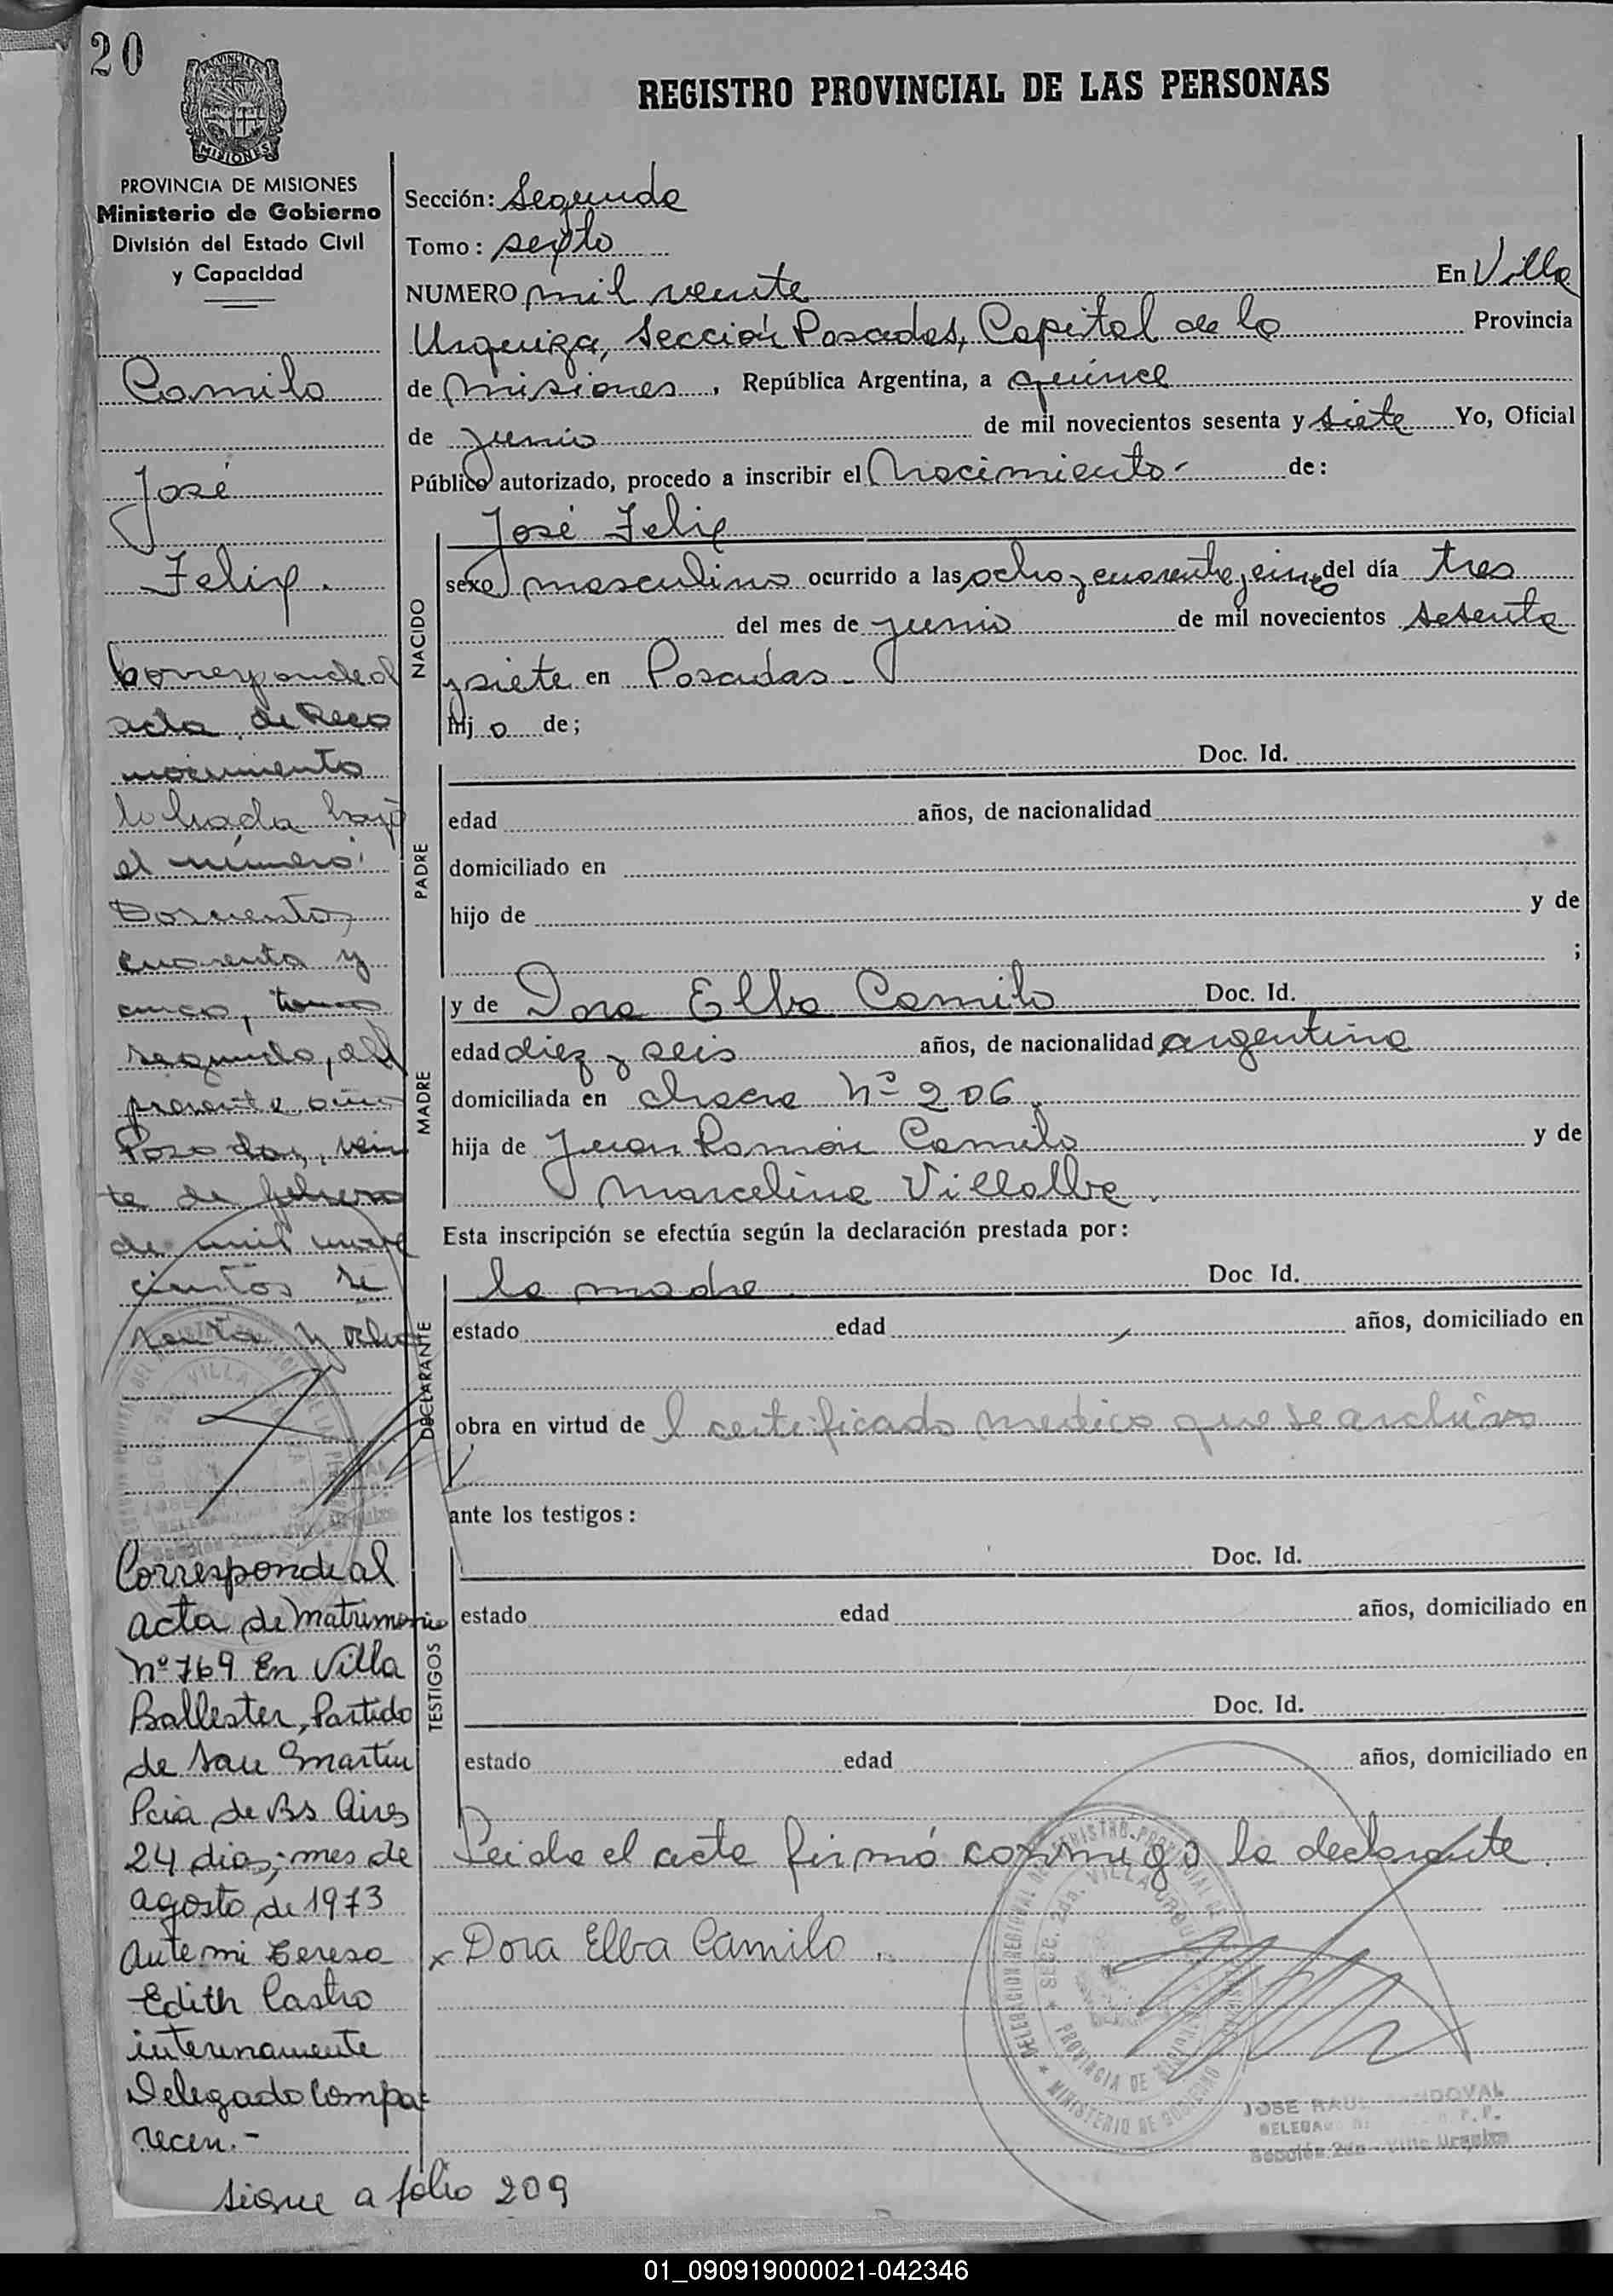 20
REGISTRO PROVINCIAL DE LAS PERSONAS
PROVINCIA DE MISIONES
Ministerio de Gobierno
División del Estado Civil
y Capacidad
Camilo
José
Felix.
Corresponde al
acta de Reco
nocimiento
labrada bajo
el número
Doscientos
cuarenta y
cinco, tomo
segundo, del
presente año
Posadas, vein
te de febrero
de mil nove
cientos se
senta y ocho
Corresponde al
acta de matrimonio
Nº 769 En Villa
Ballester, Partido
de San Martín
Pcia de Bs Aires
24 dias, mes de
agosto de 1973
Ante mi Teresa
Edith Castro
interinamente
Delegado Compa=
recen.-
sigue a folio 209
Sección: Segunda
Tomo: sexto
NUMERO mil veinte En Villa
Urquiza, Sección Posadas, Capital de la Provincia
de Misiones, República Argentina, a quince
de junio de mil novecientos sesenta y siete Yo, Oficial
Público autorizado, procedo a inscribir el Nacimiento- de:
José Felix
NACIDO
sexo masculino ocurrido a las ocho y cuarenta y cinco del día tres
del mes de junio de mil novecientos sesenta
y siete en Posadas.
hijo de;
PADRE
Doc. Id.
edad años, de nacionalidad
domiciliado en
hijo de y de
;
MADRE
y de Dora Elba Camilo Doc. Id.
edad diez y seis años, de nacionalidad argentina
domiciliada en chacra Nº 206.
hija de Juan Ramón Camilo y de
Marcelina Villalba.
Esta inscripción se efectúa según la declaración prestada por:
DECLARANTE
la madre Doc Id.
estado edad años, domiciliado en
obra en virtud del certificado medico que se archiva
ante los testigos:
TESTIGOS
Doc. Id.
estado edad años, domiciliado en
Doc. Id.
estado edad años, domiciliado en
Leida el acta firmó conmigo la declarante.
x Dora Elba Camilo.
DELEGACION REGIONAL DEL REGISTRO PROVINCIAL DE
SECC. 2da. VILLA URQUIZA
PROVINCIA DE MISIONES
MINISTERIO DE GOBIERNO
JOSE RAUL SANDOVAL
Sección 2da - Villa Urquiza
01_090919000021-042346